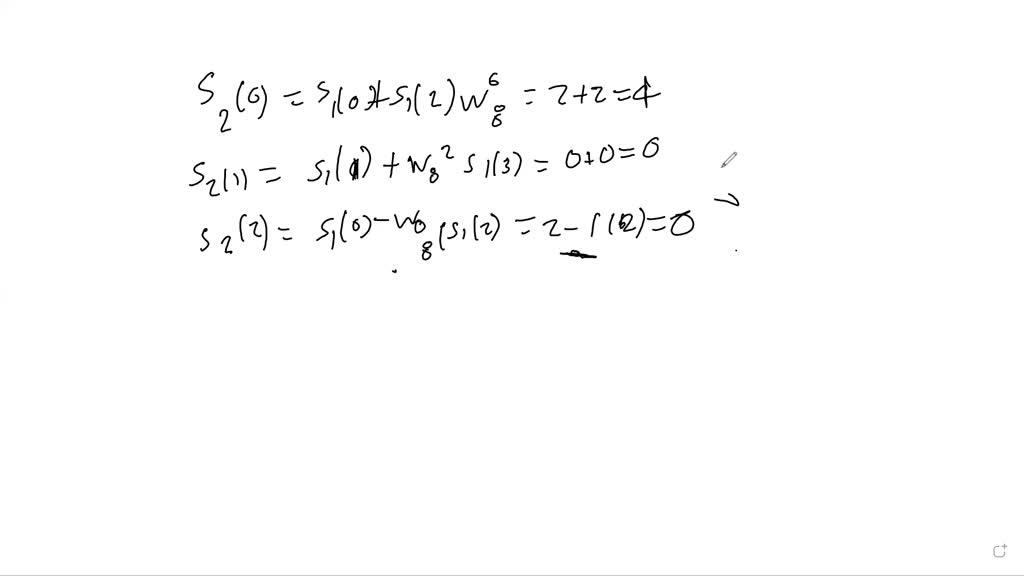 S₂(0) = S₁(0)+S₁(2) W₈⁰ = 2+2=4
S₂(1) = S₁(1) + W₈² S₁(3) = 0+0=0
S₂(2) = S₁(0)-W₈⁰ (S₁(2) = 2-1(2)=0